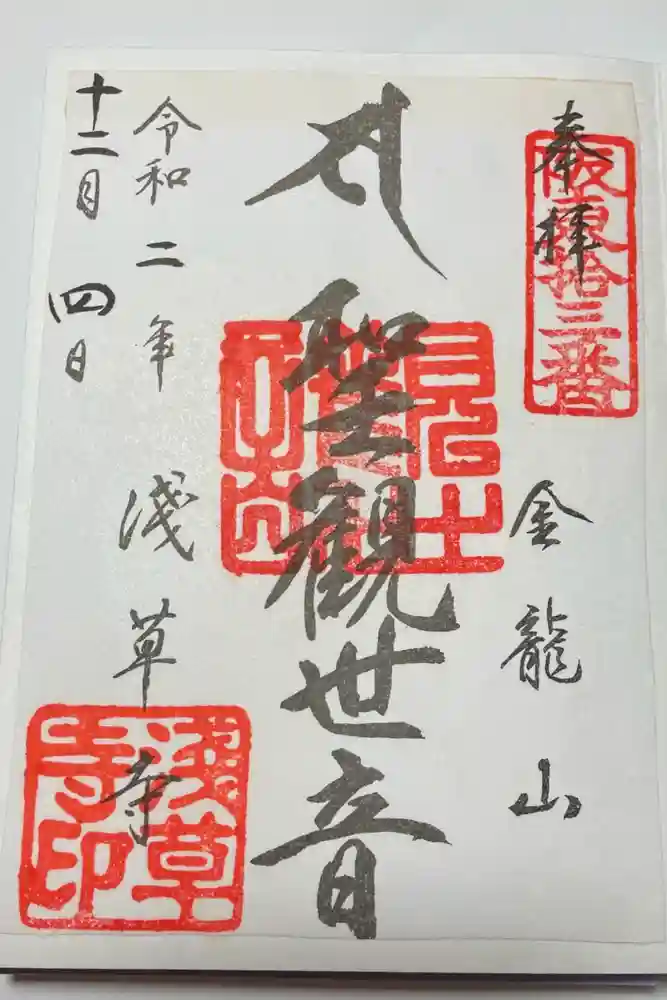 奉拝
坂東拾三番
金龍山
聖観世音
浅草寺
令和二年
十二月四日
浅草寺印